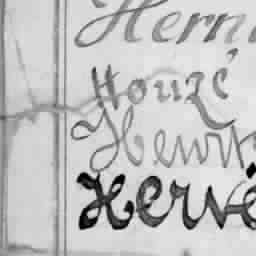 Hern
Houzé
Henry
Hervé